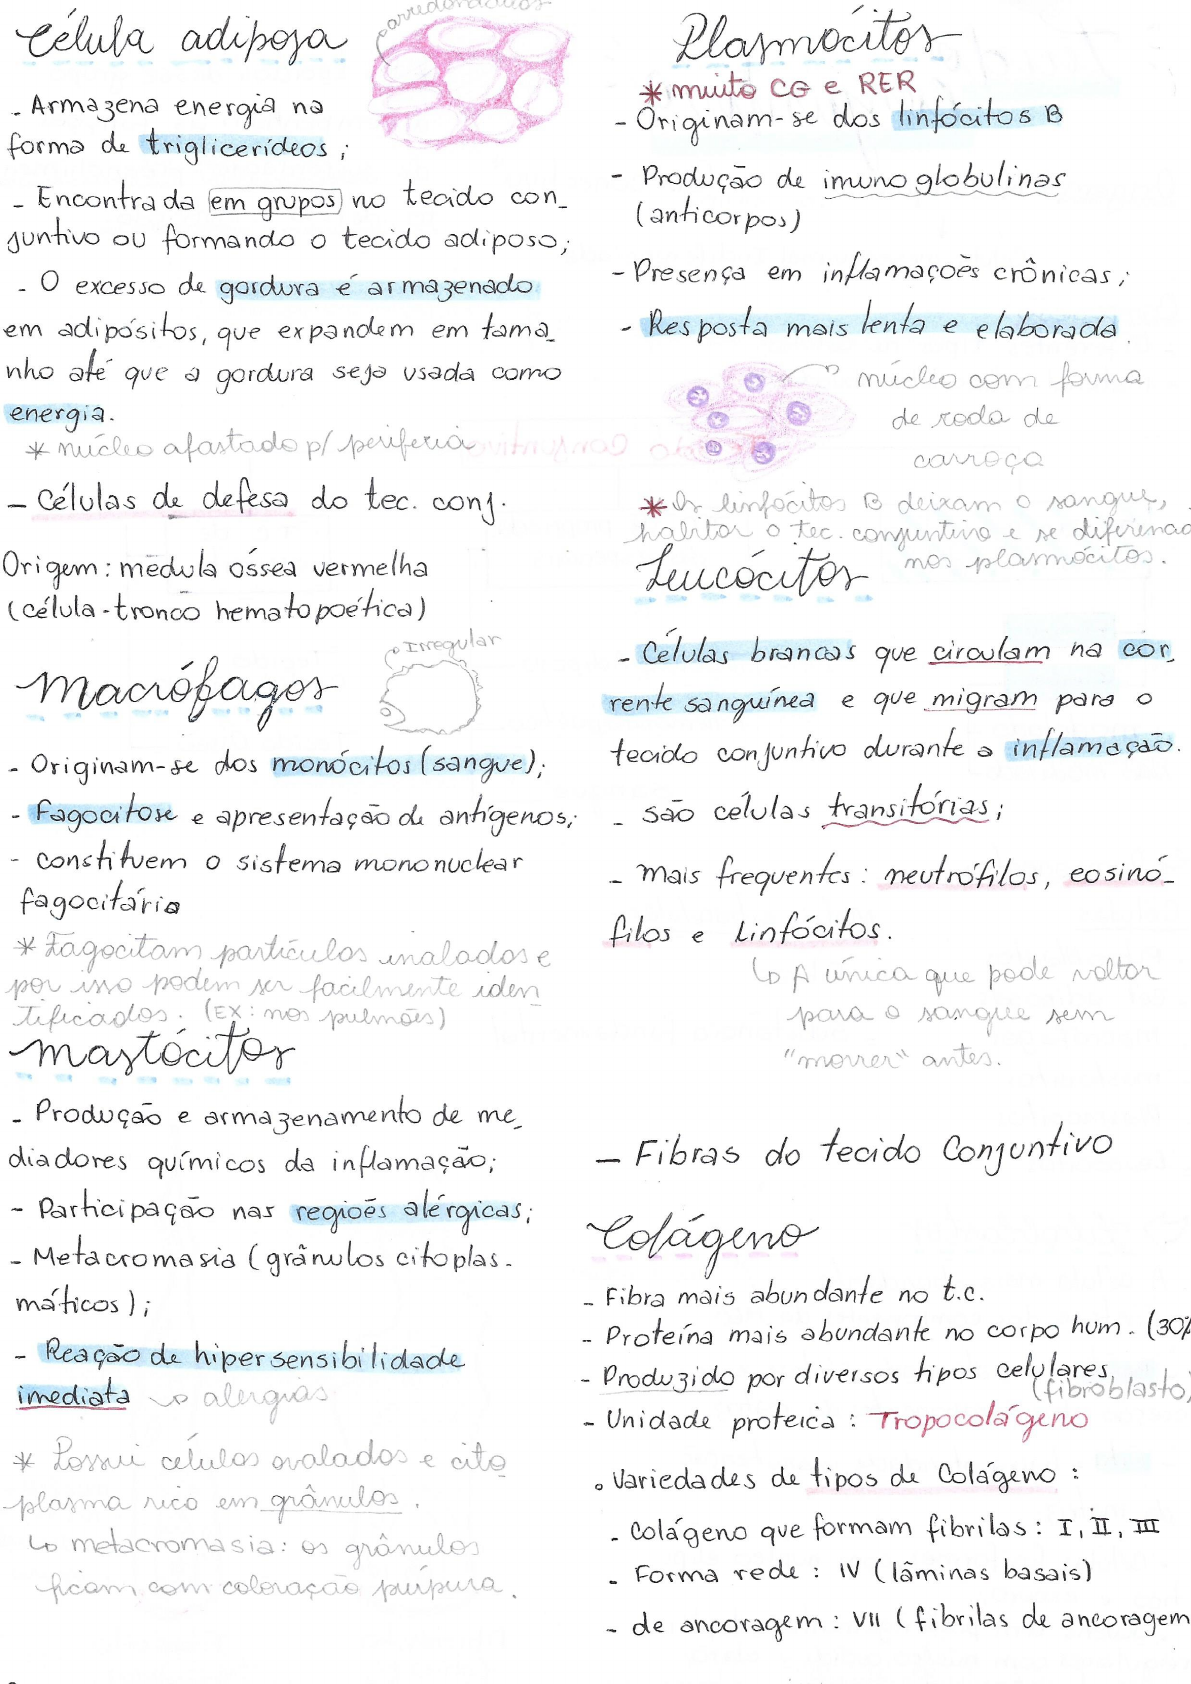 Célula adiposa
arredondados
- Armazena energia na
forma de triglicerídeos;
- Encontrada em grupos no tecido con_
juntivo ou formando o tecido adiposo;
- O excesso de gordura é armazenado
em adipósitos, que expandem em tama_
nho até que a gordura seja usada como
energia.
* núcleo afastado p/ periferia
- Células de defesa do tec. conj.
Origem: medula óssea vermelha
(célula-tronco hematopoética)
Macrófagos
Irregular
- Originam-se dos monócitos (sangue);
- Fagocitose e apresentação de antígenos;
- constituem o sistema mononuclear
fagocitário
* Fagocitam partículas inaladas e
por isso podem ser facilmente iden
tificados. (EX: nos pulmões)
Mastócitos
- Produção e armazenamento de me_
diadores químicos da inflamação;
- Participação nas regiões alérgicas;
- Metacromasia (grânulos citoplas-
máticos);
- Reação de hipersensibilidade
imediata → alergias
* Possui células ovaladas e cito
plasma rico em grânulos.
↳ metacromasia: os grânulos
ficam com coloração púrpura.
Plasmócitos
* muito CG e RER
- Originam-se dos linfócitos B
- Produção de imunoglobulinas
(anticorpos)
- Presença em inflamações crônicas;
- Resposta mais lenta e elaborada.
núcleo com forma
de roda de
carroça
* Os linfócitos B deixam o sangue,
habitar o tec. conjuntivo e se diferenciao
nos plasmócitos.
Leucócitos
- Células brancas que circulam na cor_
rente sanguínea e que migram para o
tecido conjuntivo durante a inflamação.
- são células transitórias;
- mais frequentes: neutrófilos, eosinó_
filos e Linfócitos.
↳ A única que pode voltar
para o sangue sem
"morrer" antes.
- Fibras do tecido Conjuntivo
Colágeno
- Fibra mais abundante no t.c.
- Proteína mais abundante no corpo hum. (30%
- Produzido por diversos tipos celulares
(fibroblasto)
- Unidade proteica: Tropocolágeno
∘ Variedades de tipos de Colágeno:
- Colágeno que formam fibrilas: I, II, III
- Forma rede: IV (lâminas basais)
- de ancoragem: VII (fibrilas de ancoragem